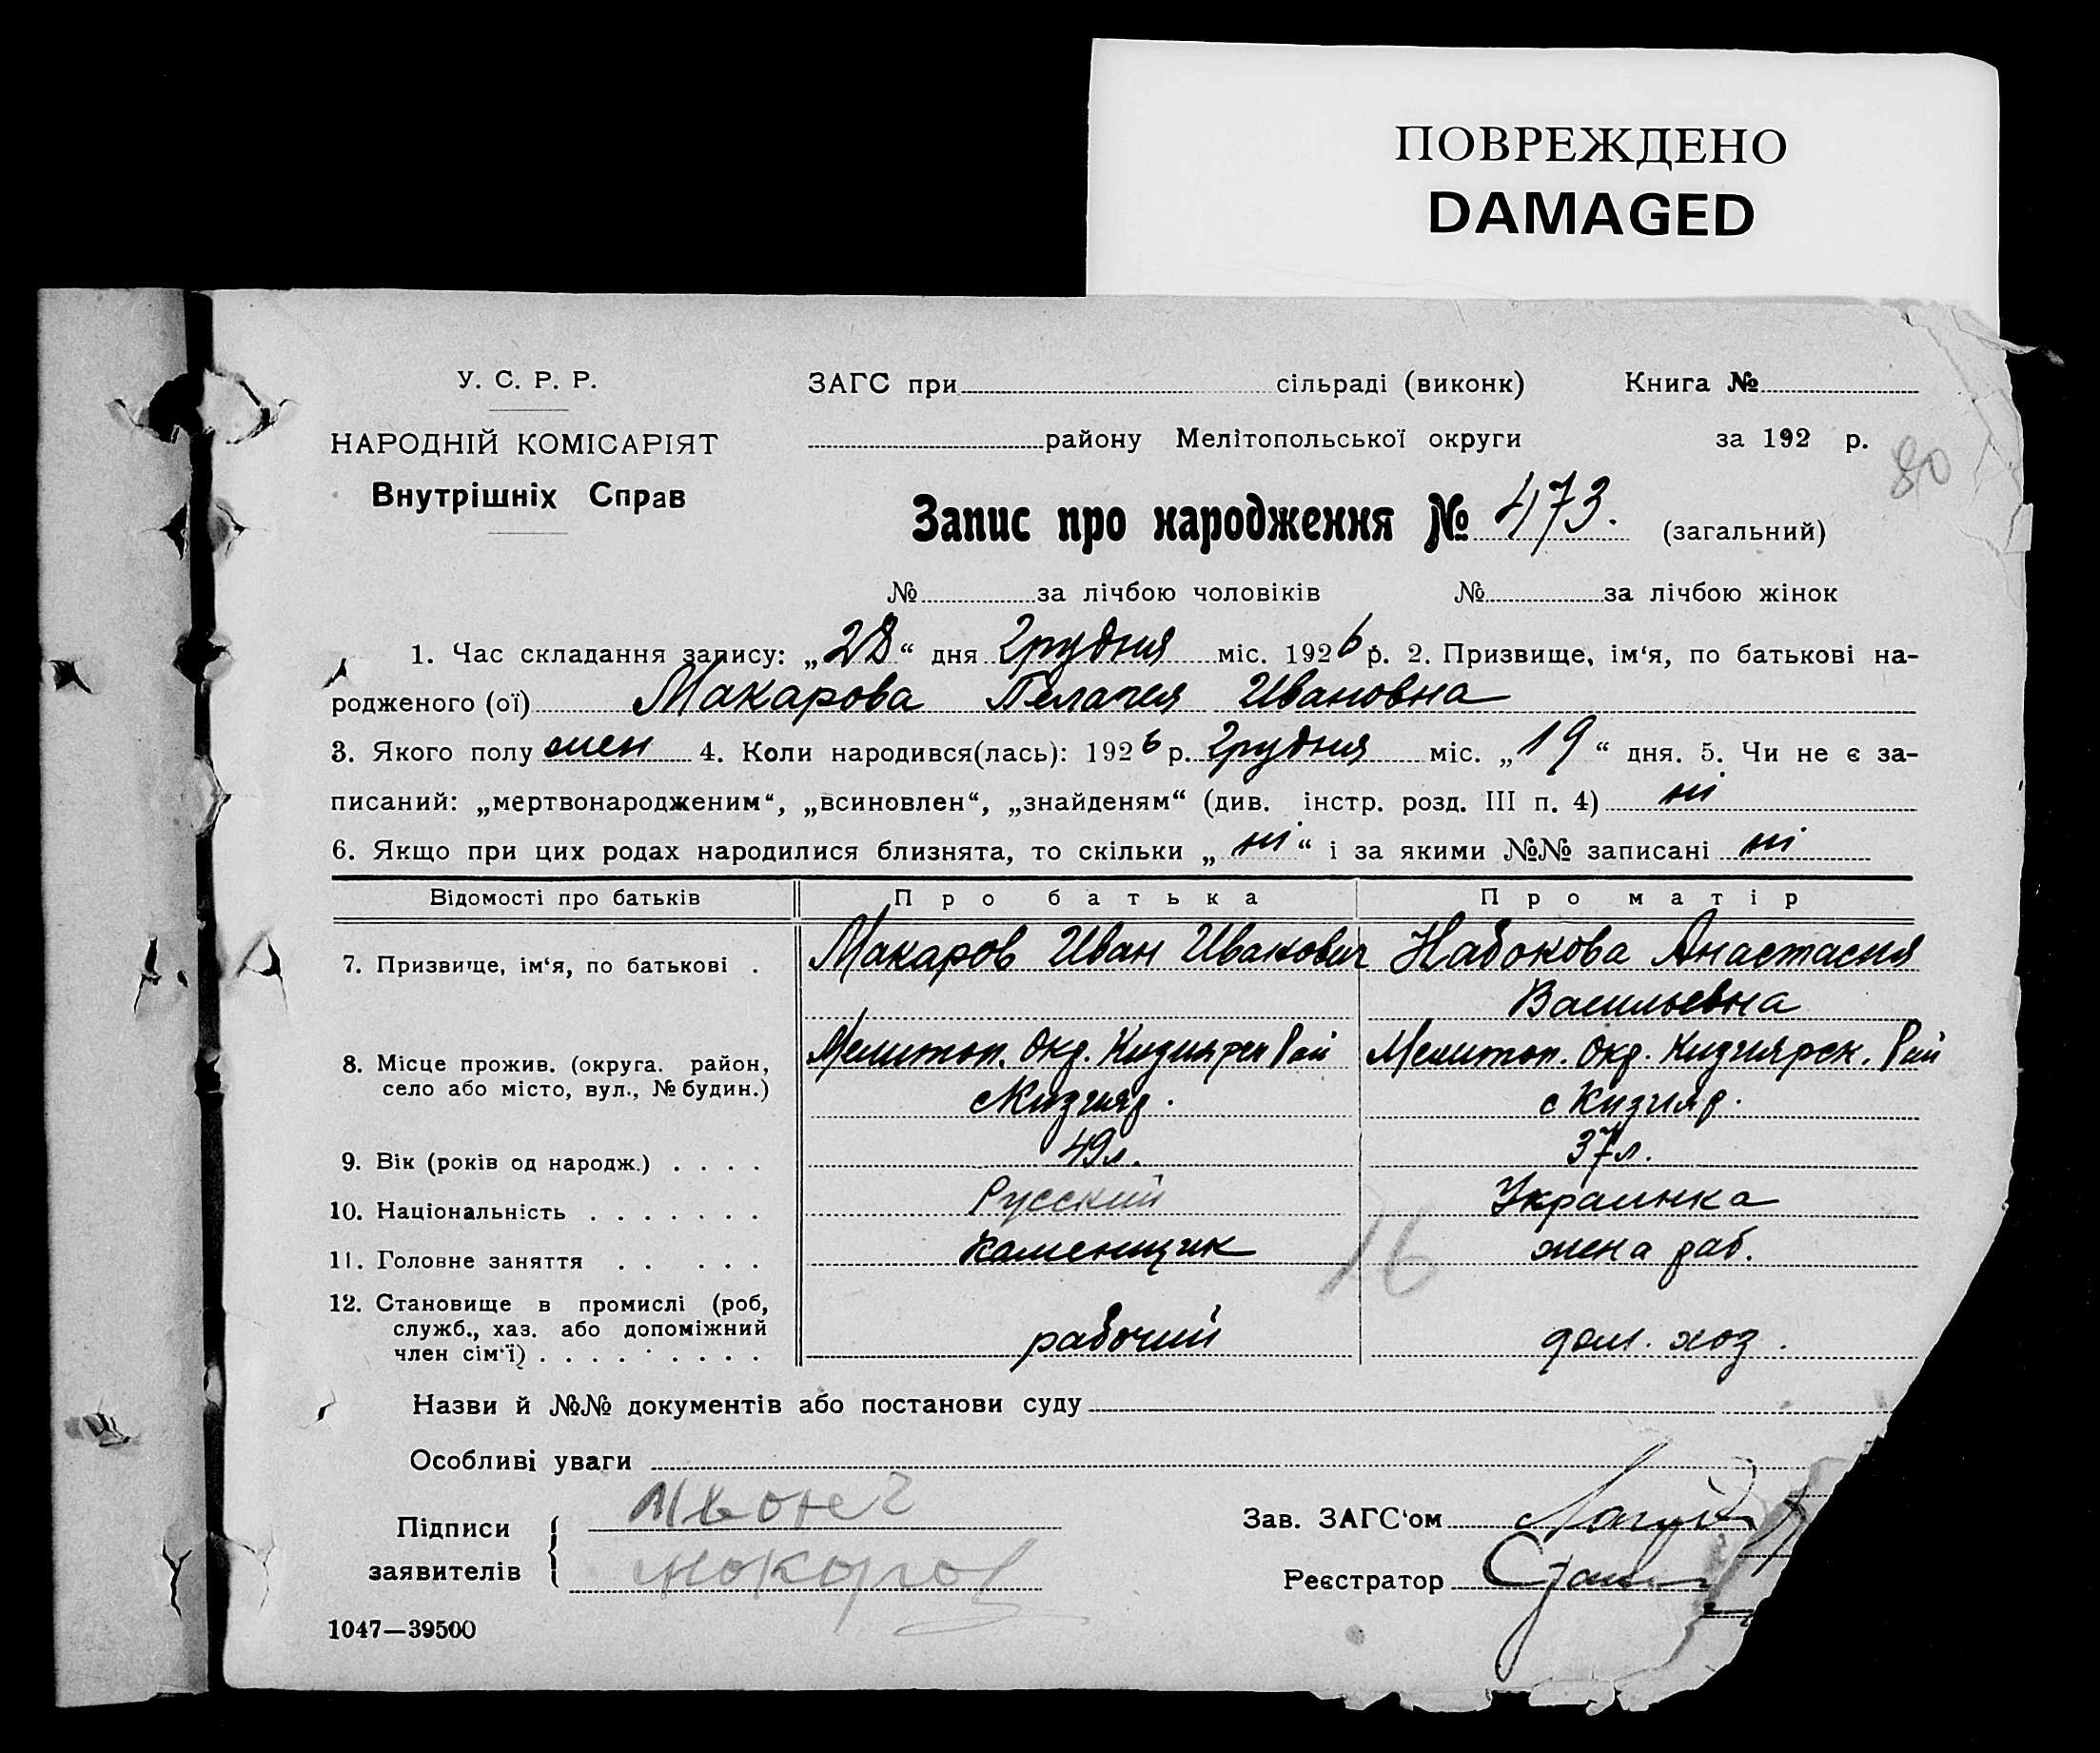 ПОВРЕЖДЕНО
DAMAGED
У. С. Р. Р.
НАРОДНІЙ КОМІСАРІЯТ
Внутрішніх Справ
ЗАГС при сільраді (виконк) Книга №
району Мелітопольської округи за 192 р.
80
Запис про народження № 473. (загальний)
№ за лічбою чоловіків № за лічбою жінок
1. Час складання запису: „28“ дня Грудня міс. 1926 р. 2. Призвище, ім‘я, по батькові на-
родженого (ої) Макарова Пелагея Ивановна
3. Якого полу жен 4. Коли народився(лась): 1926 р. Грудня міс. „19“ дня. 5. Чи не є за-
писаний: „мертвонародженим“, „всиновлен“, „знайденям“ (див. інстр. розд. III п. 4) ні
6. Якщо при цих родах народилися близнята, то скільки „ні“ і за якими №№ записані ні
Відомості про батьків Про батька Про матір
7. Призвище, ім‘я, по батькові . Макаров Иван Иванович Набокова Анастасия
Васильевна
8. Місце прожив. (округа. район, Мелитоп. Окр. Кизиярск Рай Мелитоп. Окр. Кизиярск. Рай
село або місто, вул., № будин.) с Кизияр. с Кизияр.
9. Вік (років од народж.) . . . . 49 л. 37 л.
10. Національність . . . . . . . Русский Украинка
11. Головне заняття . . . . . Каменщик жена раб.
16
12. Становище в промислі (роб,
служб., хаз. або допоміжний рабочий дом. хоз.
член сім‘ї) . . . . . . . . .
Назви й №№ документів або постанови суду
Особливі уваги
Підписи
заявителів
Мокоров
Зав. ЗАГС‘ом
Реєстратор
1047—39500